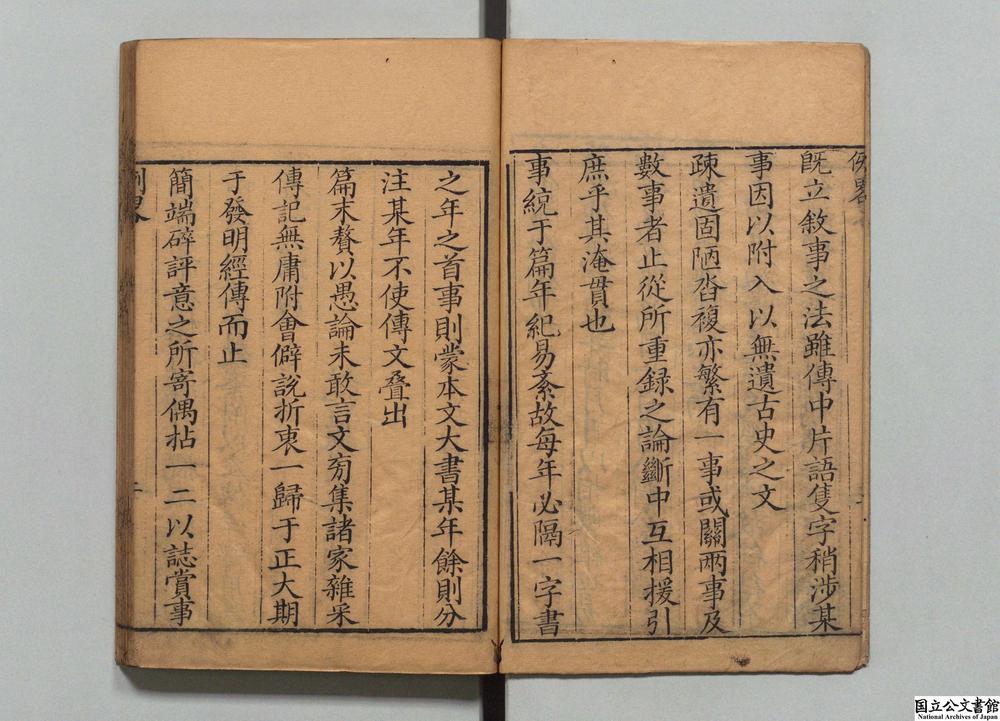 例畧
既立敘事之法雖傳中片語隻字稍涉某
事因以附入以無遺古史之文
疎遺固陋沓複亦繁有一事或關兩事及
數事者止從所重録之論斷中互相援引
庶乎其淹貫也
事統于篇年紀易紊故每年必隔一字書
之年之首事則蒙本文大書某年餘則分
注某年不使傳文叠出
篇末贅以愚論未敢言文旁集諸家雜采
傳記無庸附會僻說折衷一歸于正大期
于發明經傳而止
簡端碎評意之所寄偶拈一二以誌賞事
例畧
二
国立公文書館
National Archives of Japan